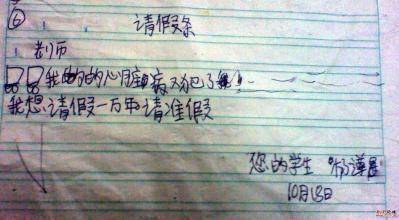 ⑥ 请假条
老师
我的的心脏病又犯了
我想请假一万年请准假
您的学生 杨
10月18日